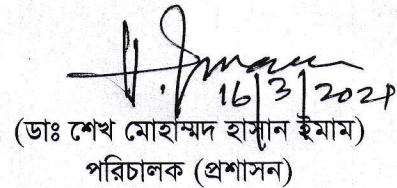 16/3/2021
(ডাঃ শেখ মোহাম্মদ হাসান ইমাম)
পরিচালক (প্রশাসন)